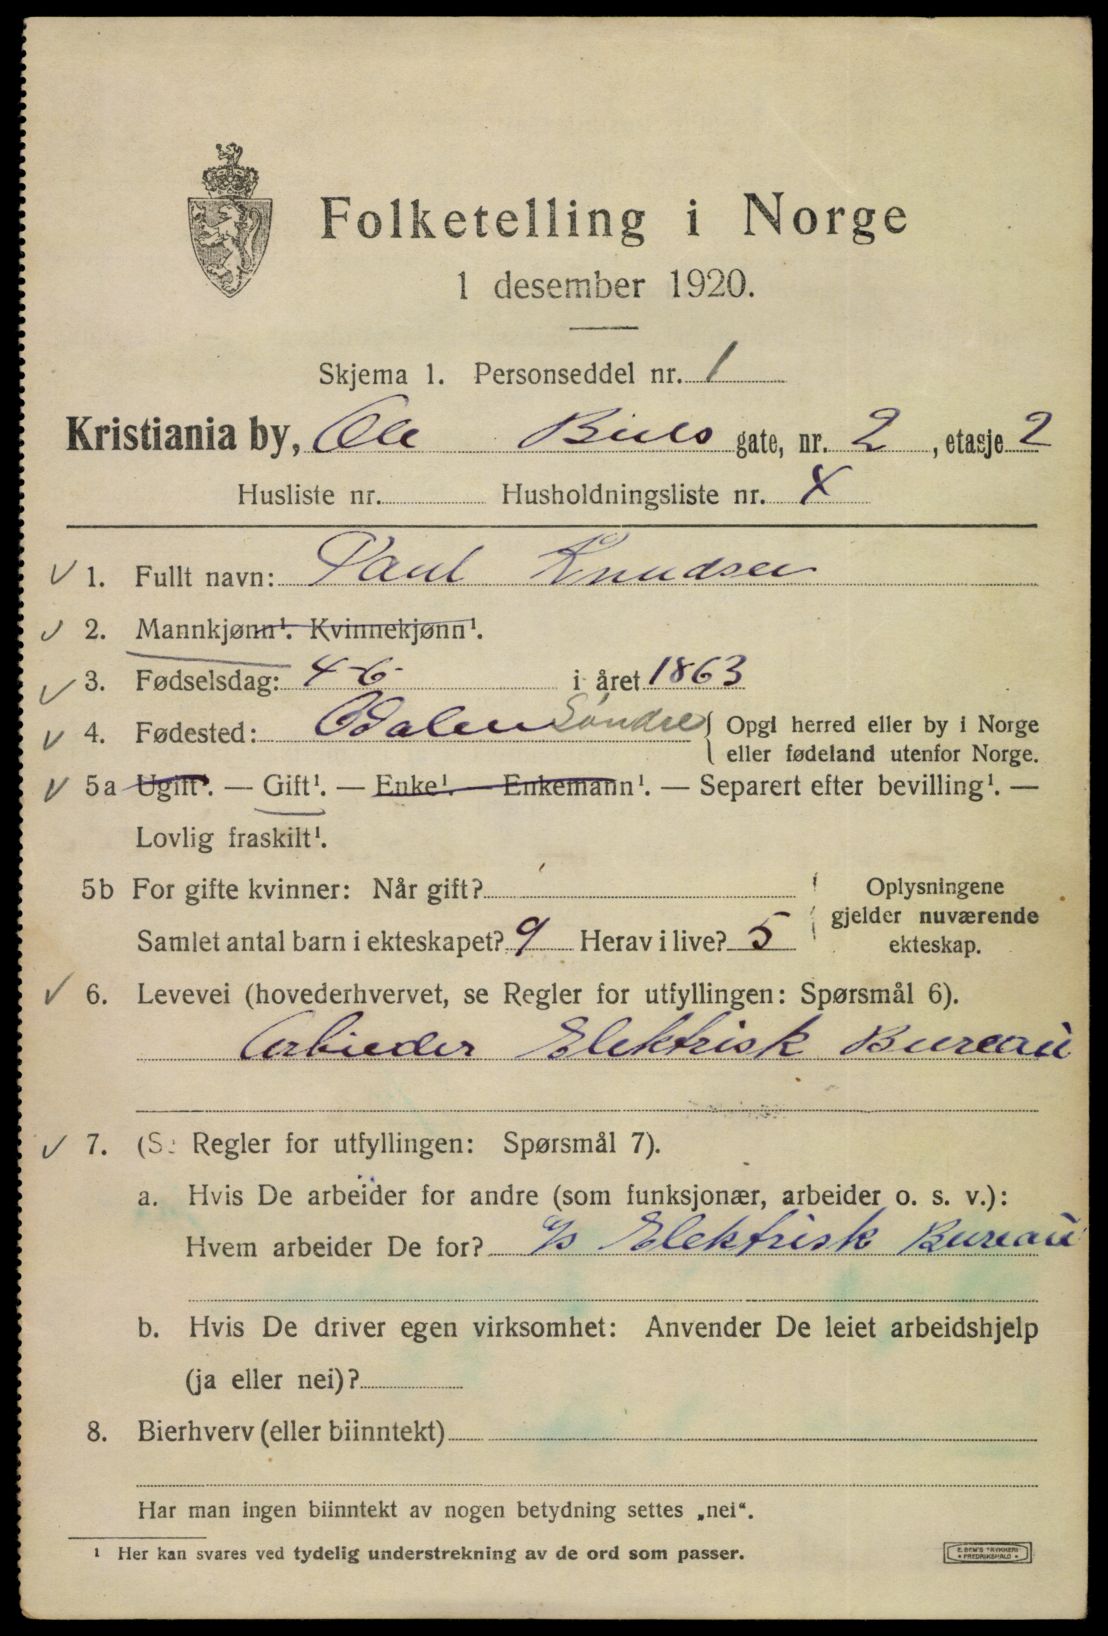 Folketelling i Norge
1 desember 1920.
Skjema 1. Personseddel nr. 1
Kristiania by, Ole Buls gate, nr. 2, etasje 2
Husliste nr. Husholdningsliste nr. X
1. Fullt navn: Paul Knudsen
2. Mannkjønn¹. Kvinnekjønn¹.
3. Fødselsdag: 4-6- i året 1863
4. Fødested: Odalen Søndre { Opgi herred eller by i Norge
eller fødeland utenfor Norge.
5a Ugift¹. — Gift¹. — Enke¹. — Enkemann¹. — Separert efter bevilling¹. —
Lovlig fraskilt¹.
5b For gifte kvinner: Når gift? Oplysningene
gjelder nuværende
Samlet antal barn i ekteskapet? 9 Herav i live? 5 ekteskap.
6. Levevei (hovederhvervet, se Regler for utfyllingen: Spørsmål 6).
Arbieder Elektrisk Bureau
7. (Se Regler for utfyllingen: Spørsmål 7).
a. Hvis De arbeider for andre (som funksjonær, arbeider o. s. v.):
Hvem arbeider De for? a/s Elektrisk Bureau
b. Hvis De driver egen virksomhet: Anvender De leiet arbeidshjelp
(ja eller nei)?
8. Bierhverv (eller biinntekt)
Har man ingen biinntekt av nogen betydning settes „nei“.
¹ Her kan svares ved tydelig understrekning av de ord som passer.
E. SEM'S TRYKKERI
• FREDRIKSHALD •